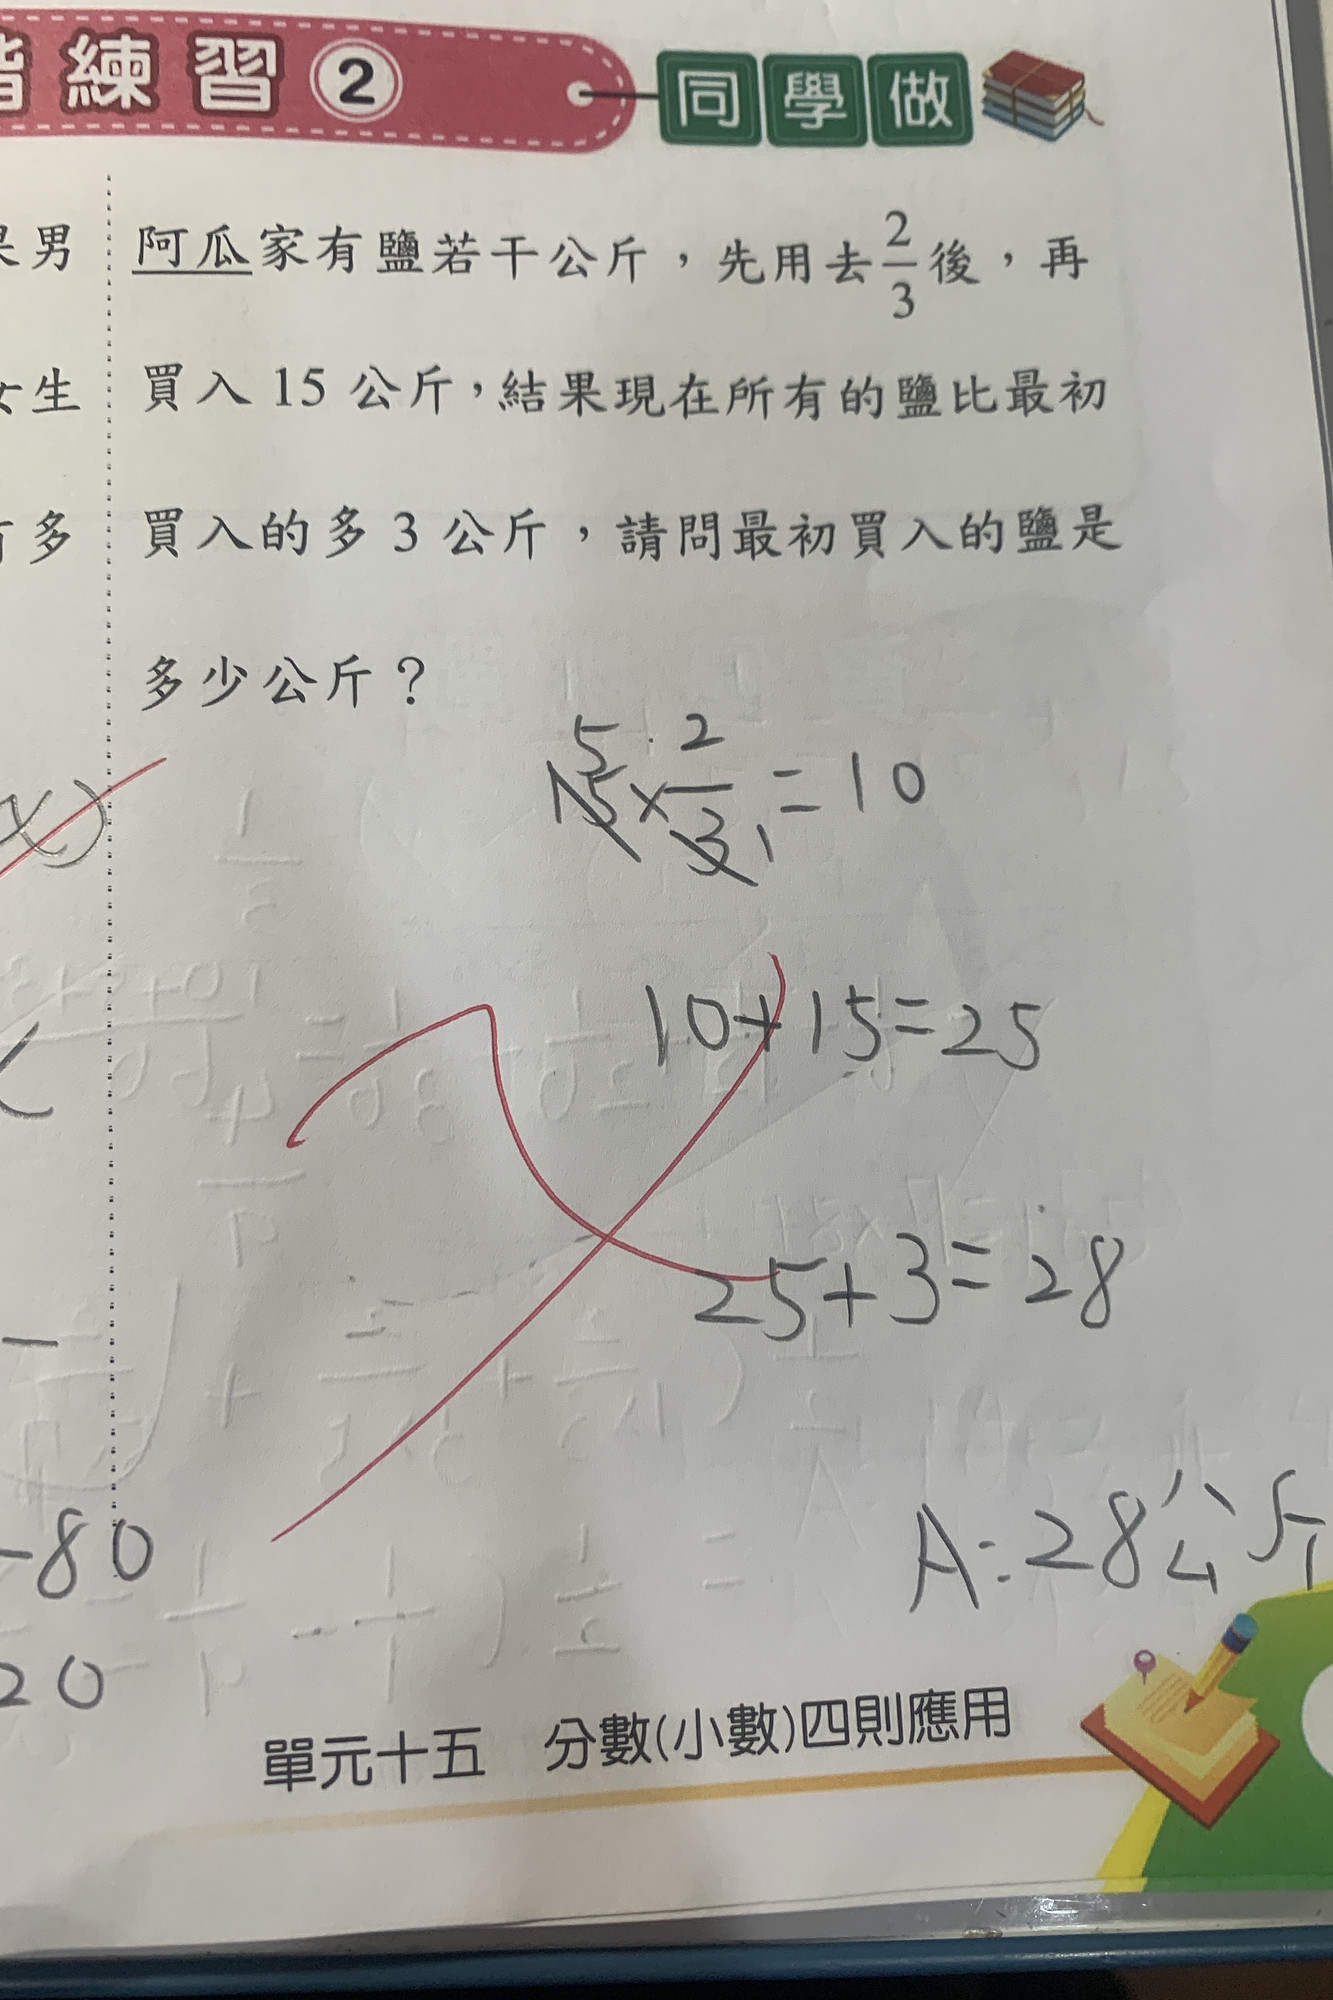 階練習② 同學做
果男
阿瓜家有鹽若干公斤，先用去2/3後，再
女生
買入 15 公斤，結果現在所有的鹽比最初
有多
買入的多 3 公斤，請問最初買入的鹽是
多少公斤？
15×2/3=10
5 1
10+15=25
25+3=28
-80
A:28公斤
20
單元十五 分數(小數)四則應用